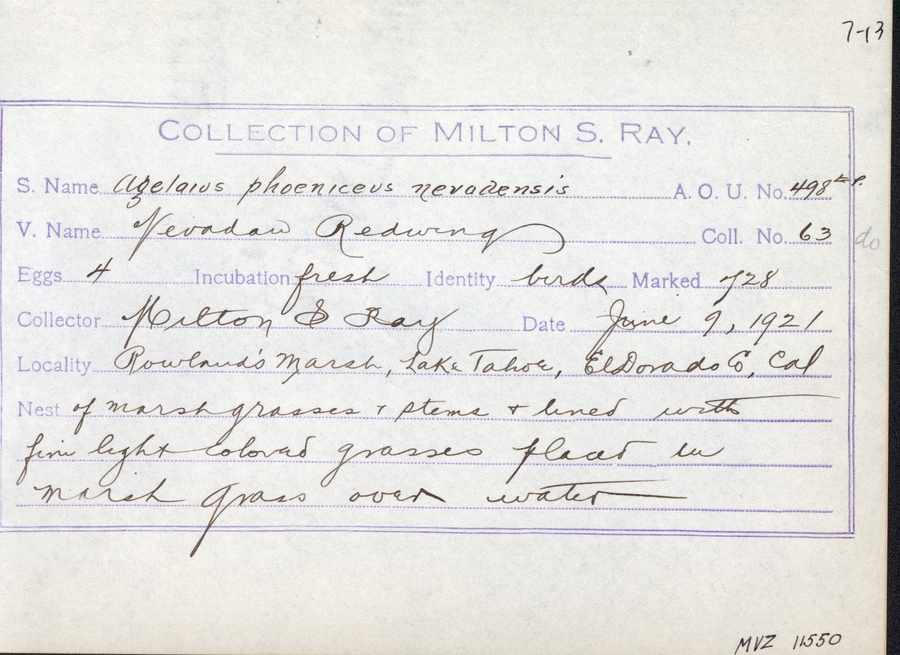 7-13
COLLECTION OF MILTON S. RAY.
S. Name Agelaius phoeniceus nevadensis A. O. U. No. 498
V. Name Nevadan Redwing Coll. No. 63 do
Eggs 4 Incubation fresh Identity birds Marked 728
Collector Milton S Ray Date June 9, 1921
Locality Rowland's Marsh, Lake Tahoe, El Dorado Co, Cal
Nest of marsh grasses + stems + lined with
fine light colored grasses placed in
marsh grass over water
MVZ 11550